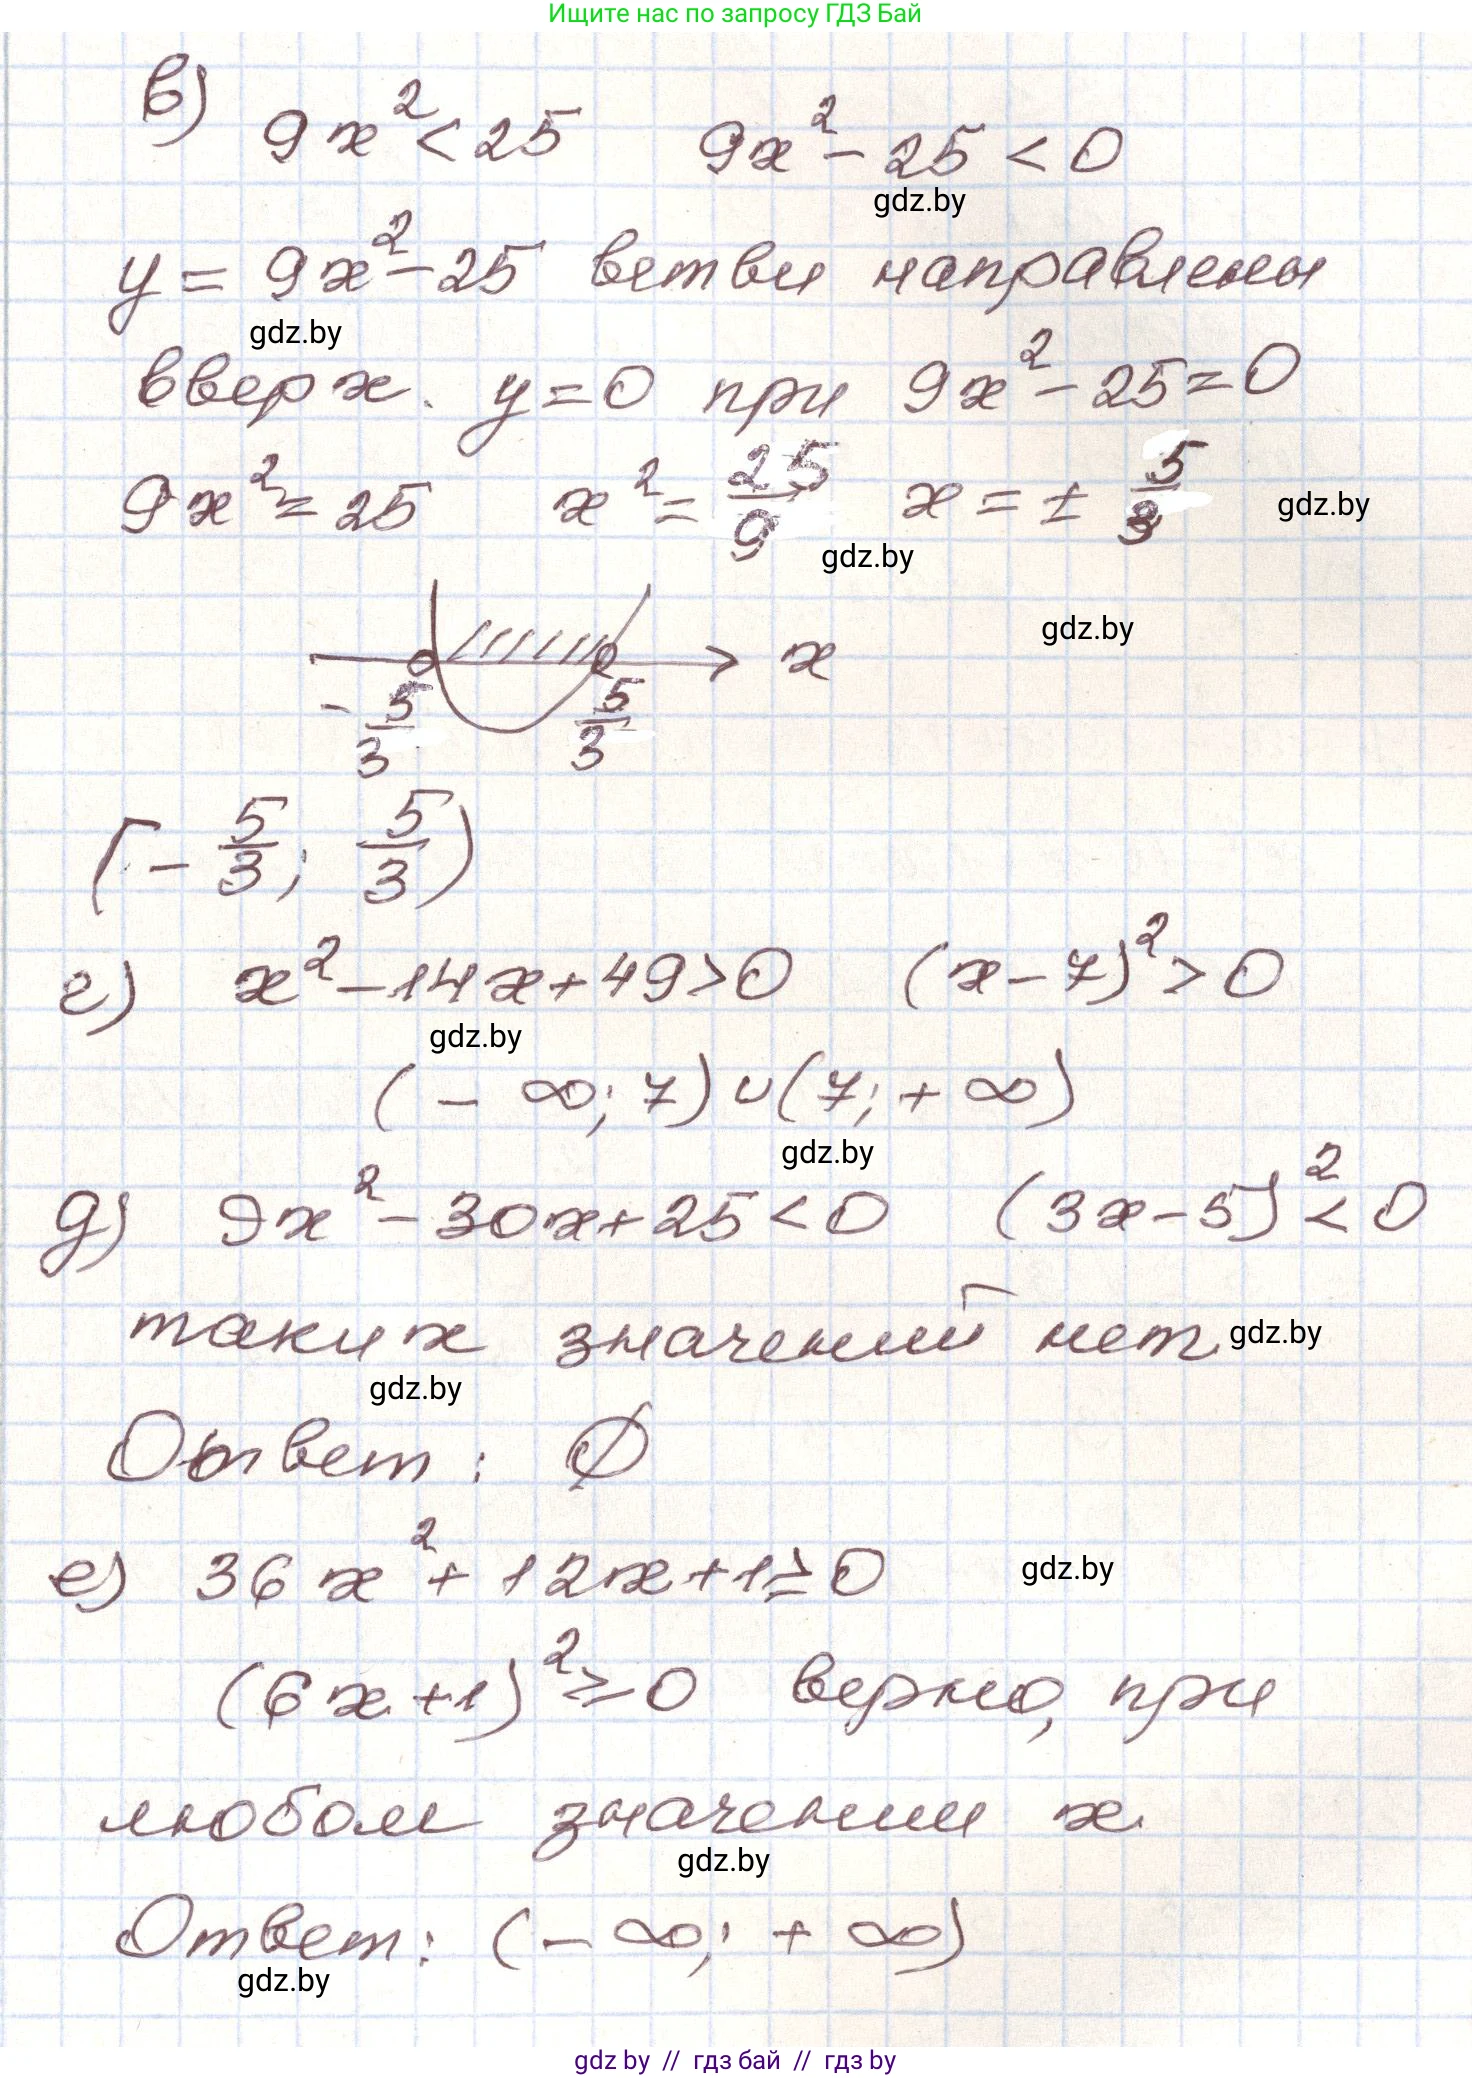 Ищите нас по запросу ГДЗ Бай
в) 9x² < 25   9x² - 25 < 0
gdz.by
y = 9x² - 25 ветви направлены
gdz.by
вверх. y = 0 при 9x² - 25 = 0
9x² = 25   x² = 25/9   x = ± 5/3
gdz.by
gdz.by
gdz.by
x
- 5/3   5/3
[- 5/3; 5/3)
г) x² - 14x + 49 > 0   (x - 7)² > 0
gdz.by
(- ∞; 7) ∪ (7; + ∞)
gdz.by
д) 9x² - 30x + 25 < 0   (3x - 5)² < 0
таких значений нет
gdz.by
gdz.by
Ответ: ∅
е) 36x² + 12x + 1 ≥ 0
gdz.by
(6x + 1)² ≥ 0 верно, при
любом значении x.
gdz.by
Ответ: (- ∞; + ∞)
gdz.by
gdz by // гдз бай // гдз by